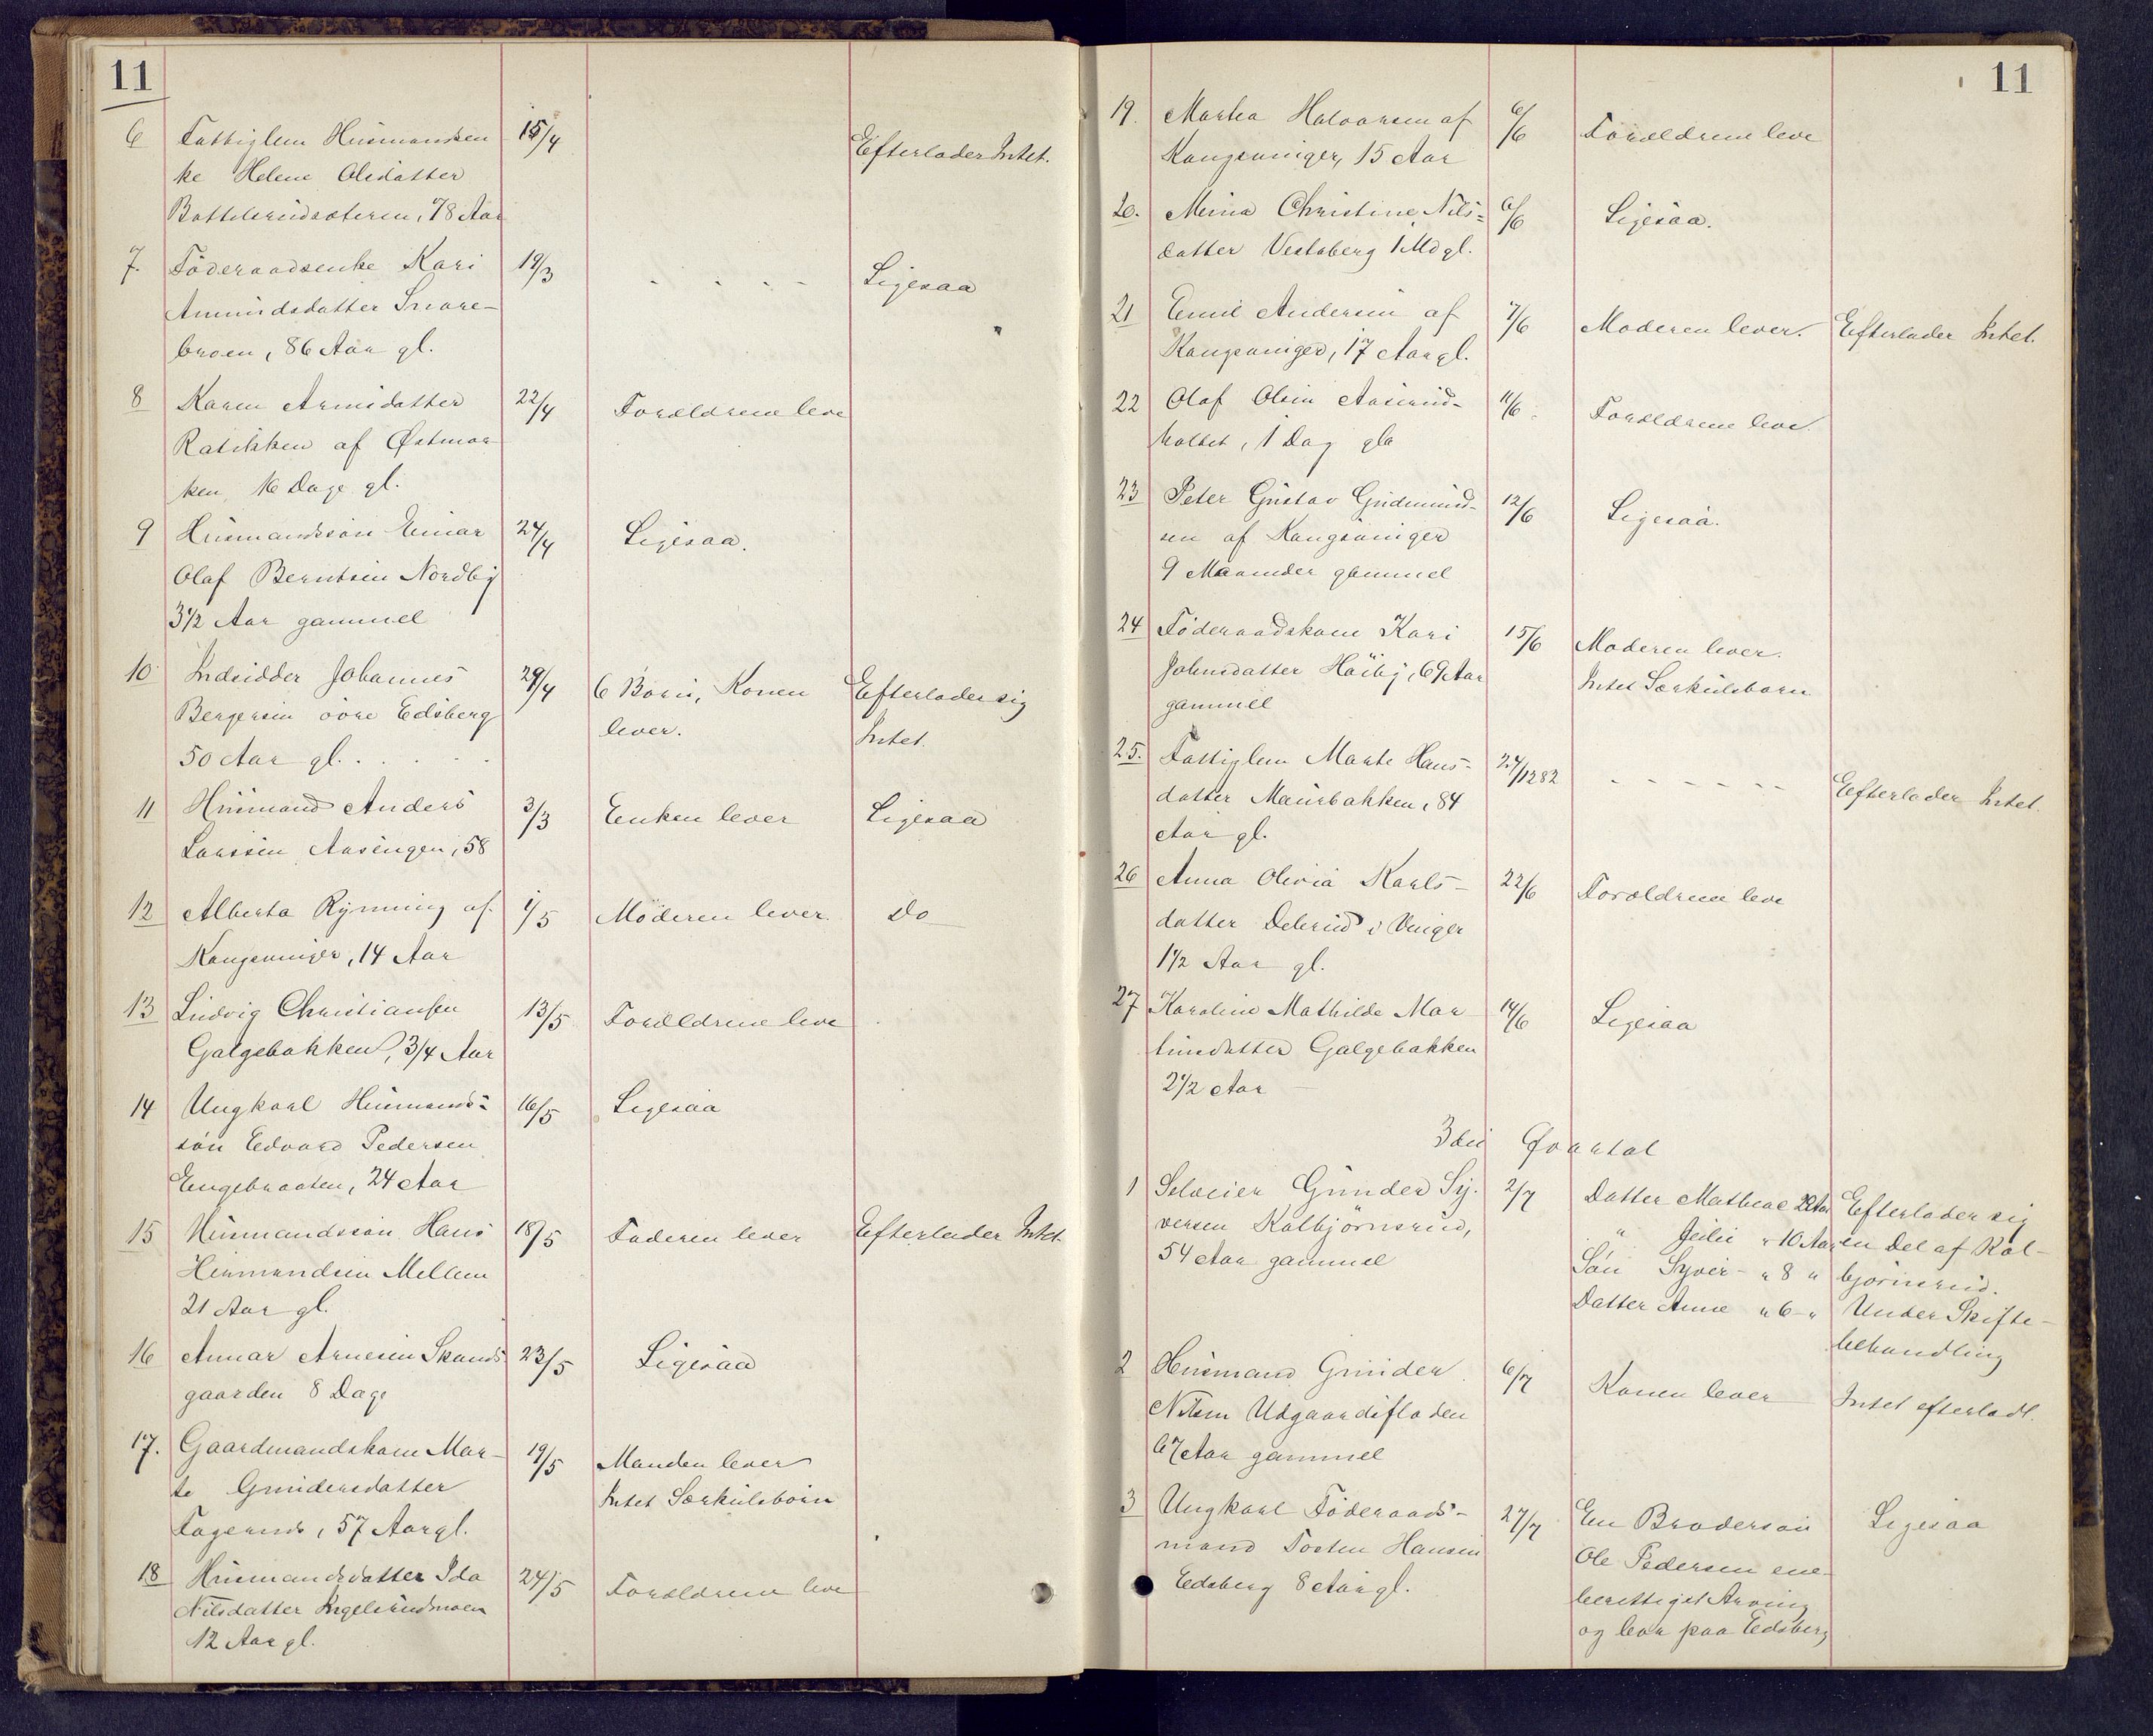 11
6 Fattiglem Husmandsen 15/4
ke Helene Olsdatter Efterlader Intet.
Battelsrudsæteren, 78 Aar
7. Föderaadsenke Kari 19/3 - - - - Ligesaa
Amundsdatter Snare-
broen, 86 Aar gl.
8 Karen Arnisdatter 22/4 Forældrene leve
Ratikken af Østmar
ken, 16 Dage gl.
9 Husmandssön Einar 24/4 Ligesaa.
Olaf Berntsen Nordby
3 1/2 Aar gammel
10 Indsidder Johannes 29/4 6 Börn, Konen Efterlader sig
Bergersen övre Edsberg lever. Intet.
50 Aar gl. . . . .
11 Husmand Anders 3/3 Enken lever Ligesaa
Larssen Aasengen, 58
12 Alberta Rynning af 1/5 Moderen lever. Do
Kongsvinger, 14 Aar
13 Ludvig Christiansen 13/5 Forældrene leve
Galgebakken, 3/4 Aar
14 Ungkarl Husmands- 16/5 Ligesaa
sön Edvard Pedersen
Engebraaten, 24 Aar
15 Husmandssön Hans 18/5 Faderen lever Efterlader Intet.
Hermandsen Mellem
21 Aar gl.
16 Annar Arnesen Skands 23/5 Ligesaa
gaarden 8 Dage
17. Gaardmandskone Mar- 19/5 Manden lever
te Gundersdatter Intet Særkulsbörn
Fagerud, 57 Aar gl.
18 Husmandsdatter Ida 24/5 Forældrene leve
Nilsdatter Ingelsrudmoen
12 Aar gl.
11
19. Martha Halvorsen af 6/6 Forældrene leve
Kongsvinger, 15 Aar
20. Meina Christine Nils= 6/6 Ligesaa.
datter Vestaberg 1 Md gl.
21 Emil Andersen af 7/6 Moderen lever. Efterlader Intet.
Kongsvinger, 17 Aar gl.
22 Olaf Olsen Aaserud- 11/6 Forældrene leve.
holtet, 1 Dag gl
23 Peter Gustav Gudmund- 12/6 Ligesaa.
sen af Kongsvinger
9 Maaneder gammel
24 Föderaadskone Kari 15/6 Moderen lever.
Johnsdatter Haiby, 69 Aar Intet Særkulsbarn
gammel
25. Fattiglem Marte Hans- 24/12 82 - - - - - - Efterlader Intet.
datter Maurbakken, 84
Aar gl.
26 Anna Olivia Karls- 22/6 Forældrene leve
datter Delerud i Vinger
1 1/2 Aar gl.
27 Karoline Mathilde Mar 14/6 Ligesaa
tinsdatter Galgebakken
2 1/2 Aar
3die Qvartal
1 Selveier Gunder Sy- 2/7 Datter Mathea 22 Aar Efterlader sig
versen Kolbjörnsrud, " " 10 Aar en Del af Kol-
54 Aar gammel Sön Syver - " 8 " björnsrud.
Datter Anne " 6 " Under Skifte-
behandling
2 Husmand Gunder 6/7 Konen lever Intet efterladt.
Nilsen Udgaardsfloden
67 Aar gammel
3 Ungkarl Föderaads- 27/7 En Brodersön Ligesaa
mand Tosten Hansen Ole Pedersen ene-
Edsberg 8 Aar gl. berettiget Arving
og bor paa Edsberg